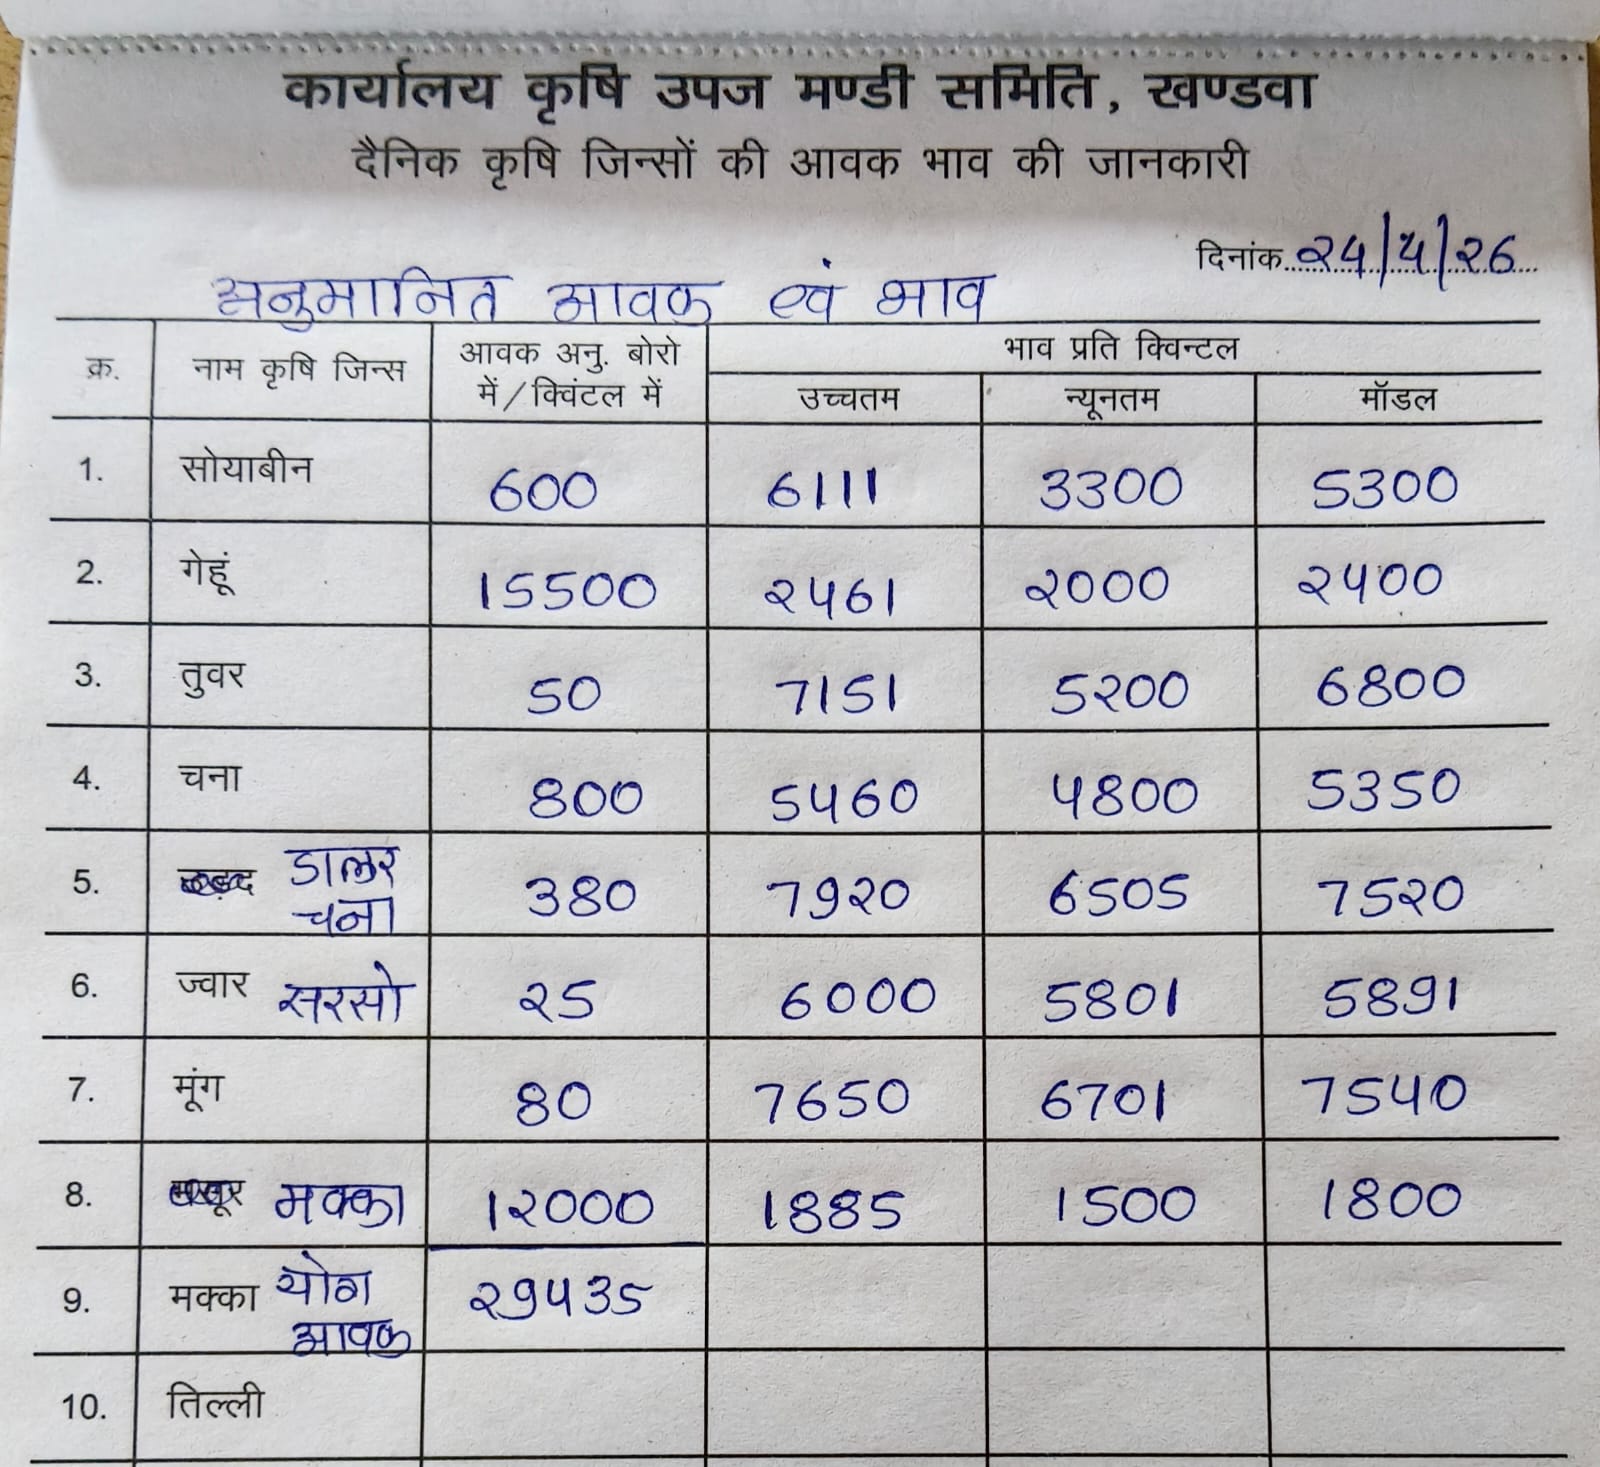 कार्यालय कृषि उपज मण्डी समिति, खण्डवा
दैनिक कृषि जिन्सों की आवक भाव की जानकारी
दिनांक 24/4/26
अनुमानित आवक एवं भाव
क्र. नाम कृषि जिन्स आवक अनु. बोरो में/क्विंटल में भाव प्रति क्विन्टल
उच्चतम न्यूनतम मॉडल
1. सोयाबीन 600 6111 3300 5300
2. गेहूं 15500 2461 2000 2400
3. तुवर 50 7151 5200 6800
4. चना 800 5460 4800 5350
5. डालर चना 380 7920 6505 7520
6. ज्वार सरसो 25 6000 5801 5891
7. मूंग 80 7650 6701 7540
8. मक्का 12000 1885 1500 1800
9. मक्का योग आवक 29435
10. तिल्ली